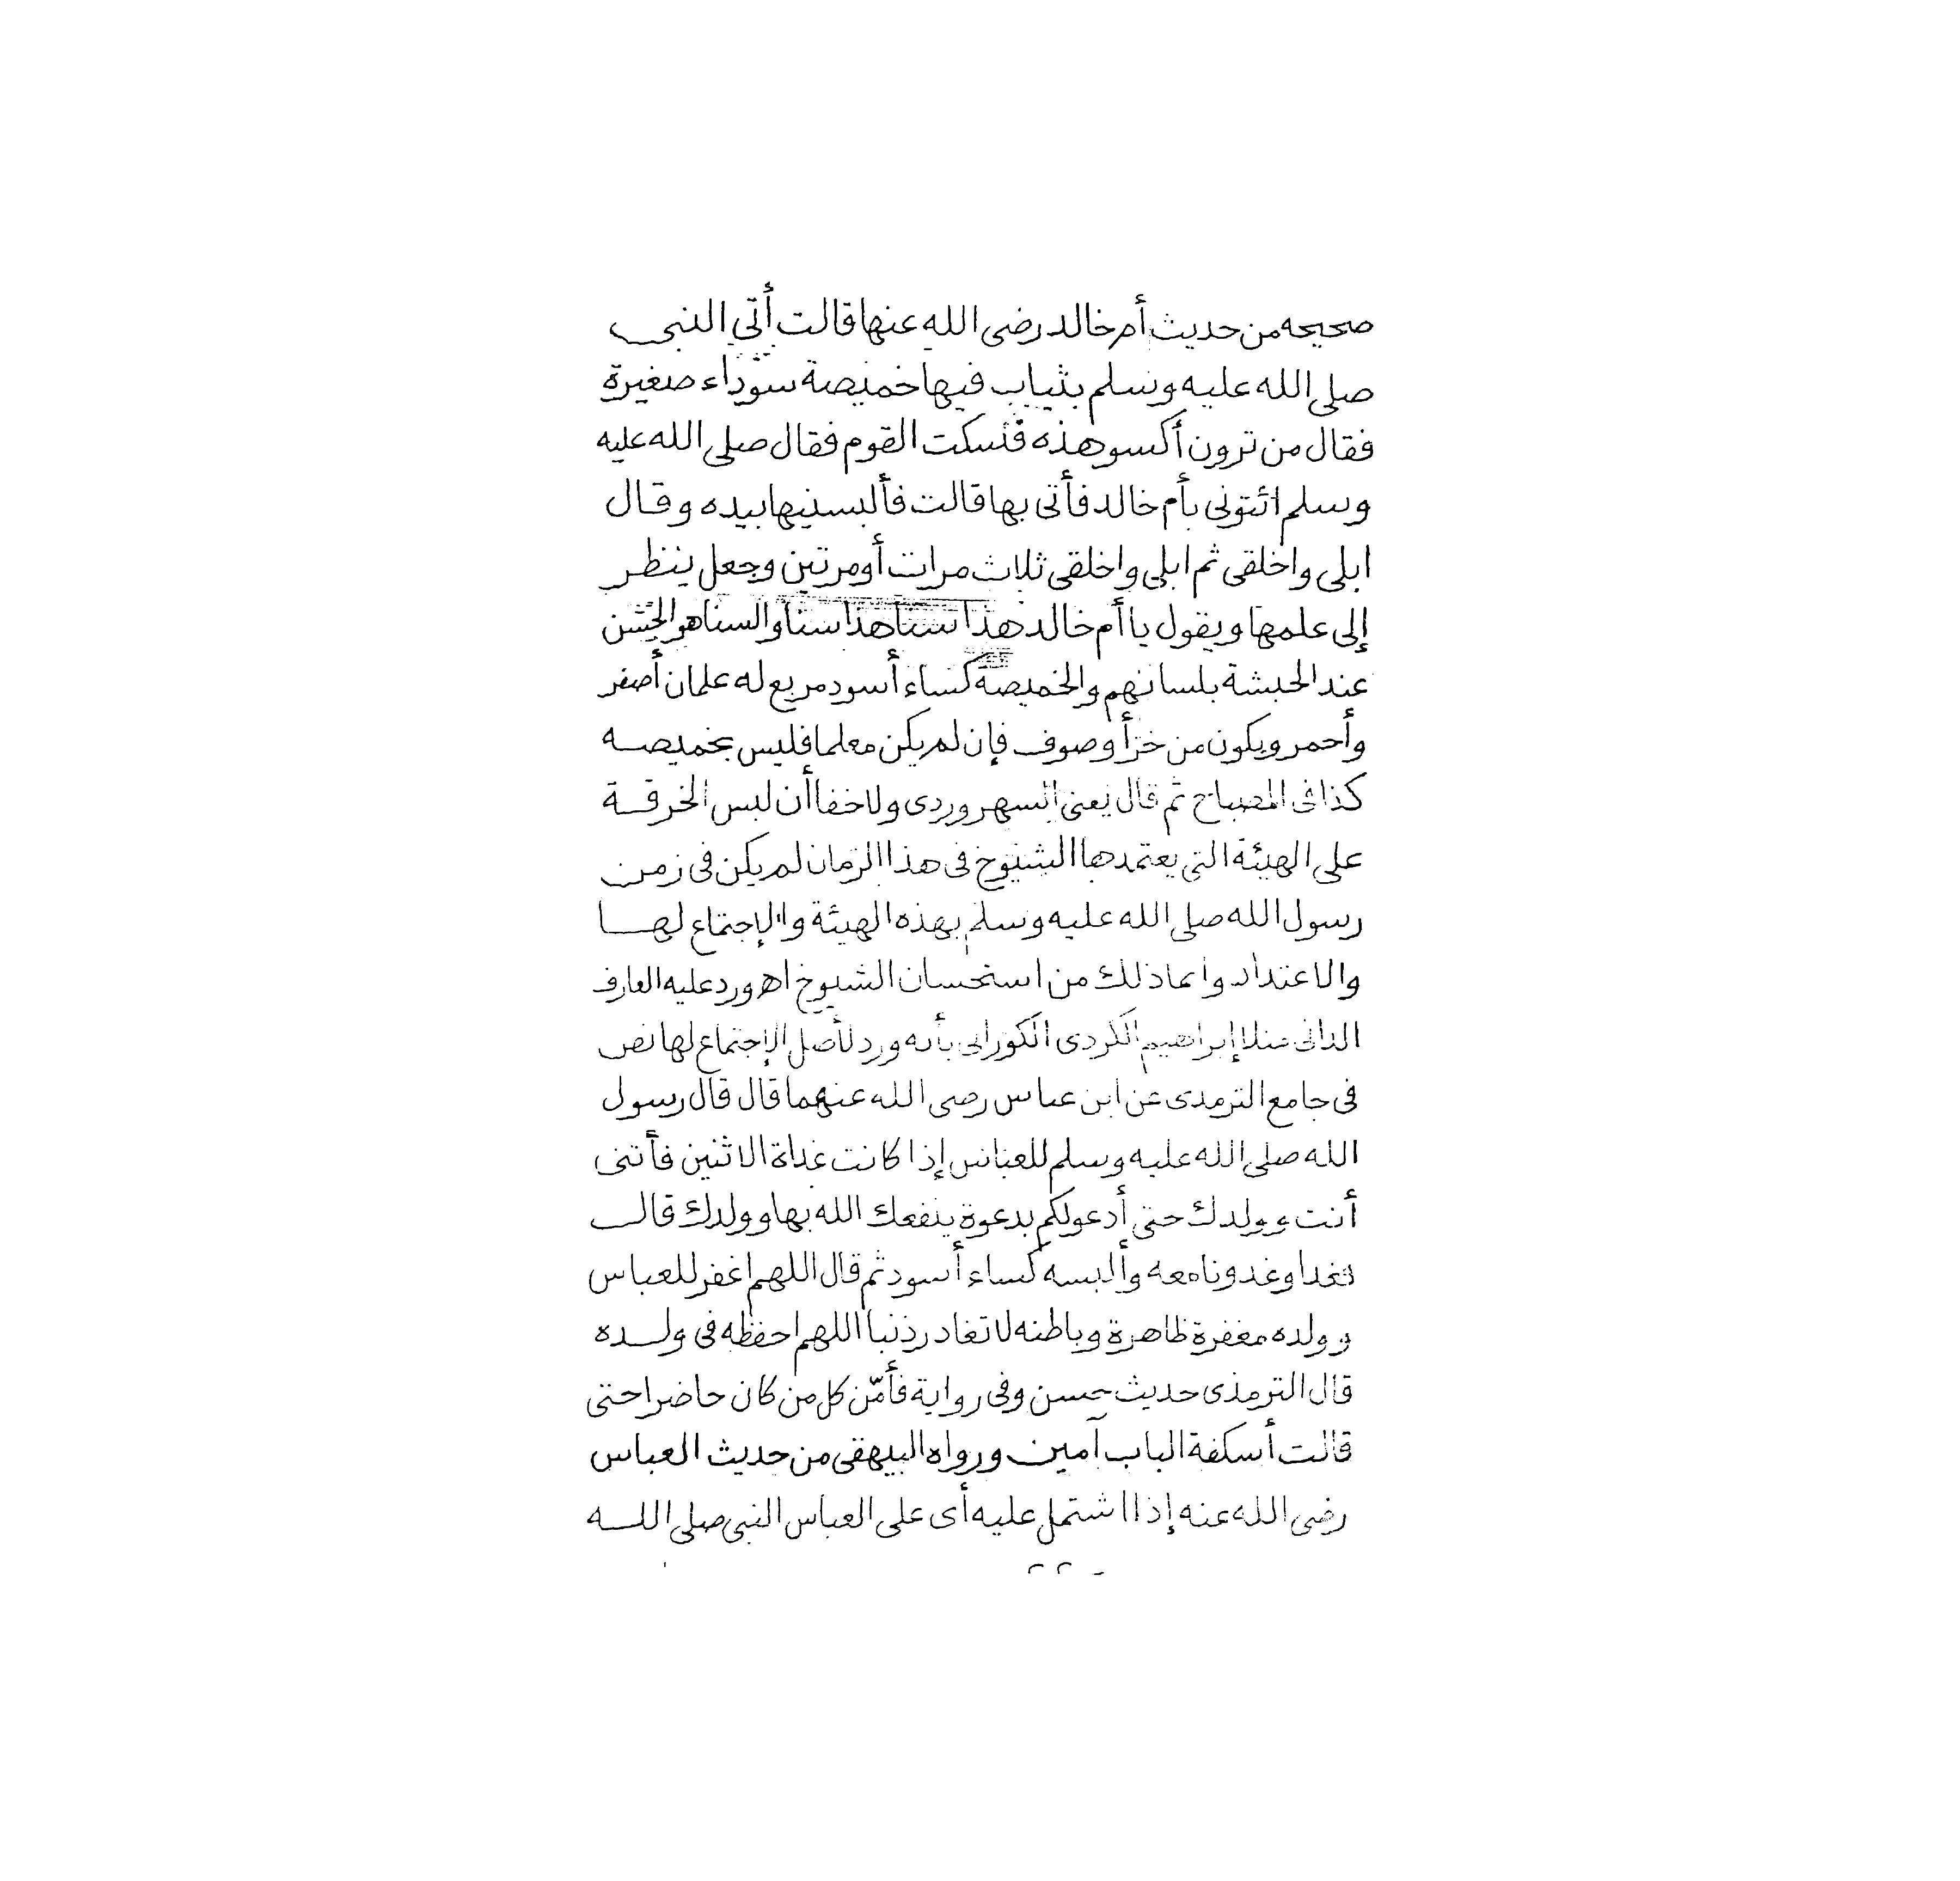 صحيحه من حديث أم خالد رضى الله عنها قالت أتي النبى
صلى الله عليه وسلم بثياب فيها خميصة سوداء صغيرة
فقال من ترون أكسو هذه فسكت القوم فقال صلى الله عليه
وسلم ائتونى بأم خالد فأتى بها قالت فألبسنيها بيده وقال
ابلى واخلقى ثم ابلى واخلقى ثلاث مرات أو مرتين وجعل ينظر
إلى علمها ويقول يا أم خالد هذا سنا هذا سنا والسنا هو الحسن
عند الحبشة بلسانهم والخميصة كساء أسود مربع له علمان أصفر
وأحمر ويكون من خز أو صوف فإن لم يكن معلما فليس بخميصه
كذا فى المصباح ثم قال يعنى السهروردى ولا خفا أن لبس الخرقة
على الهيئة التى يعتمدها الشيوخ فى هذا الزمان لم يكن فى زمن
رسول الله صلى الله عليه وسلم بهذه الهيئة والإجتماع لها
والاعتداد وانما ذلك من استحسان الشيوخ اهـ ورد عليه العارف
منلا إبراهيم الكردى الكورانى بأنه ورد لأصل الإجتماع لها نص
فى جامع الترمذى عن ابن عباس رضى الله عنهما قال قال رسول
الله صلى الله عليه وسلم للعباس إذا كانت غداة الاثنين فأتنى
أنت وولدك حتى أدعو لكم بدعوة ينفعك الله بها وولدك قال
فغدا وغدونا معه وألبسه كساء أسود ثم قال اللهم اغفر للعباس
وولده مغفرة ظاهرة وباطنه لا تغادر ذنبا اللهم احفظه فى ولده
قال الترمذى حديث حسن وفى رواية فأمّن كل من كان حاضرا حتى
قالت أسكفة الباب آمين ورواه البيهقى من حديث العباس
رضى الله عنه إذا اشتمل عليه أى على العباس النبى صلى الله